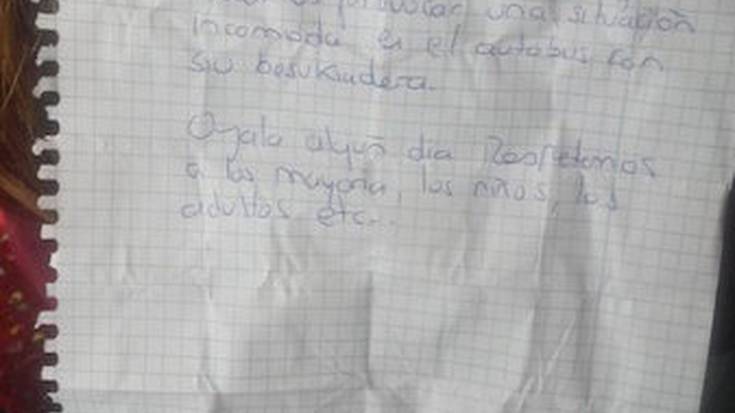 una situación
incomoda en el autobus con
su besukeadera.
Ojala algun dia Respetemos
a las mayoria, los niños, los
adultos etc...